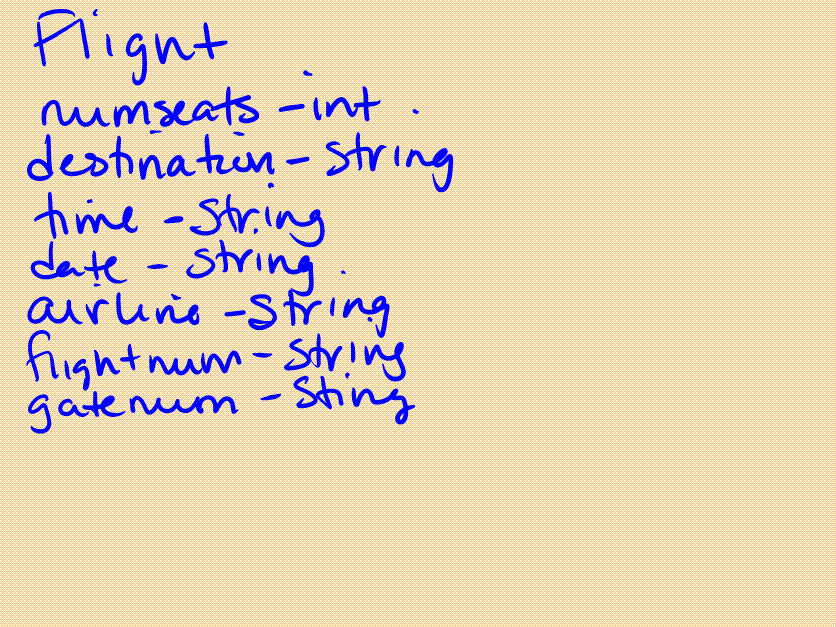 Flight
numseats - int
destination - string
time - string
date - string
airline - string
flightnum - string
gatenum - sting